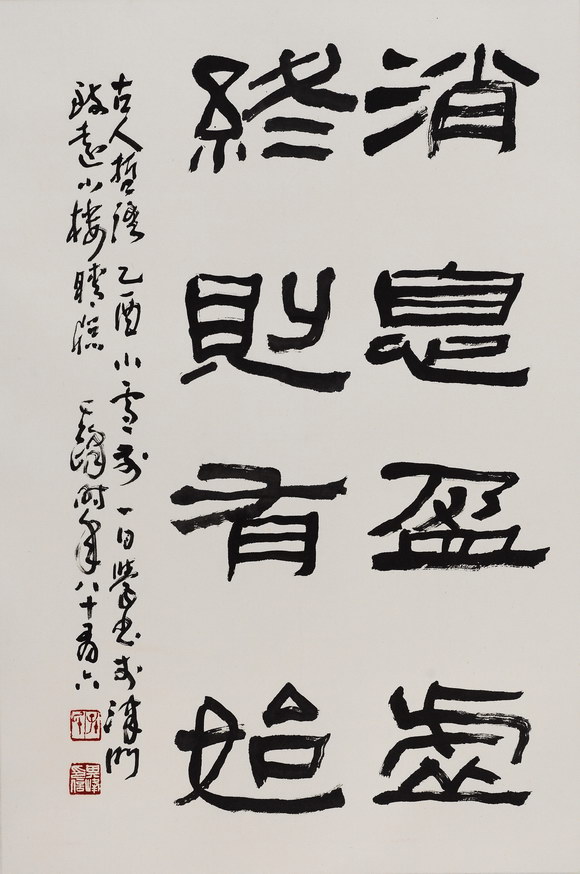 消息盈虚
終則有始
古人哲語 乙酉小雪前一日 書於津門
致遠小樓晴窗 其峰時年八十有六